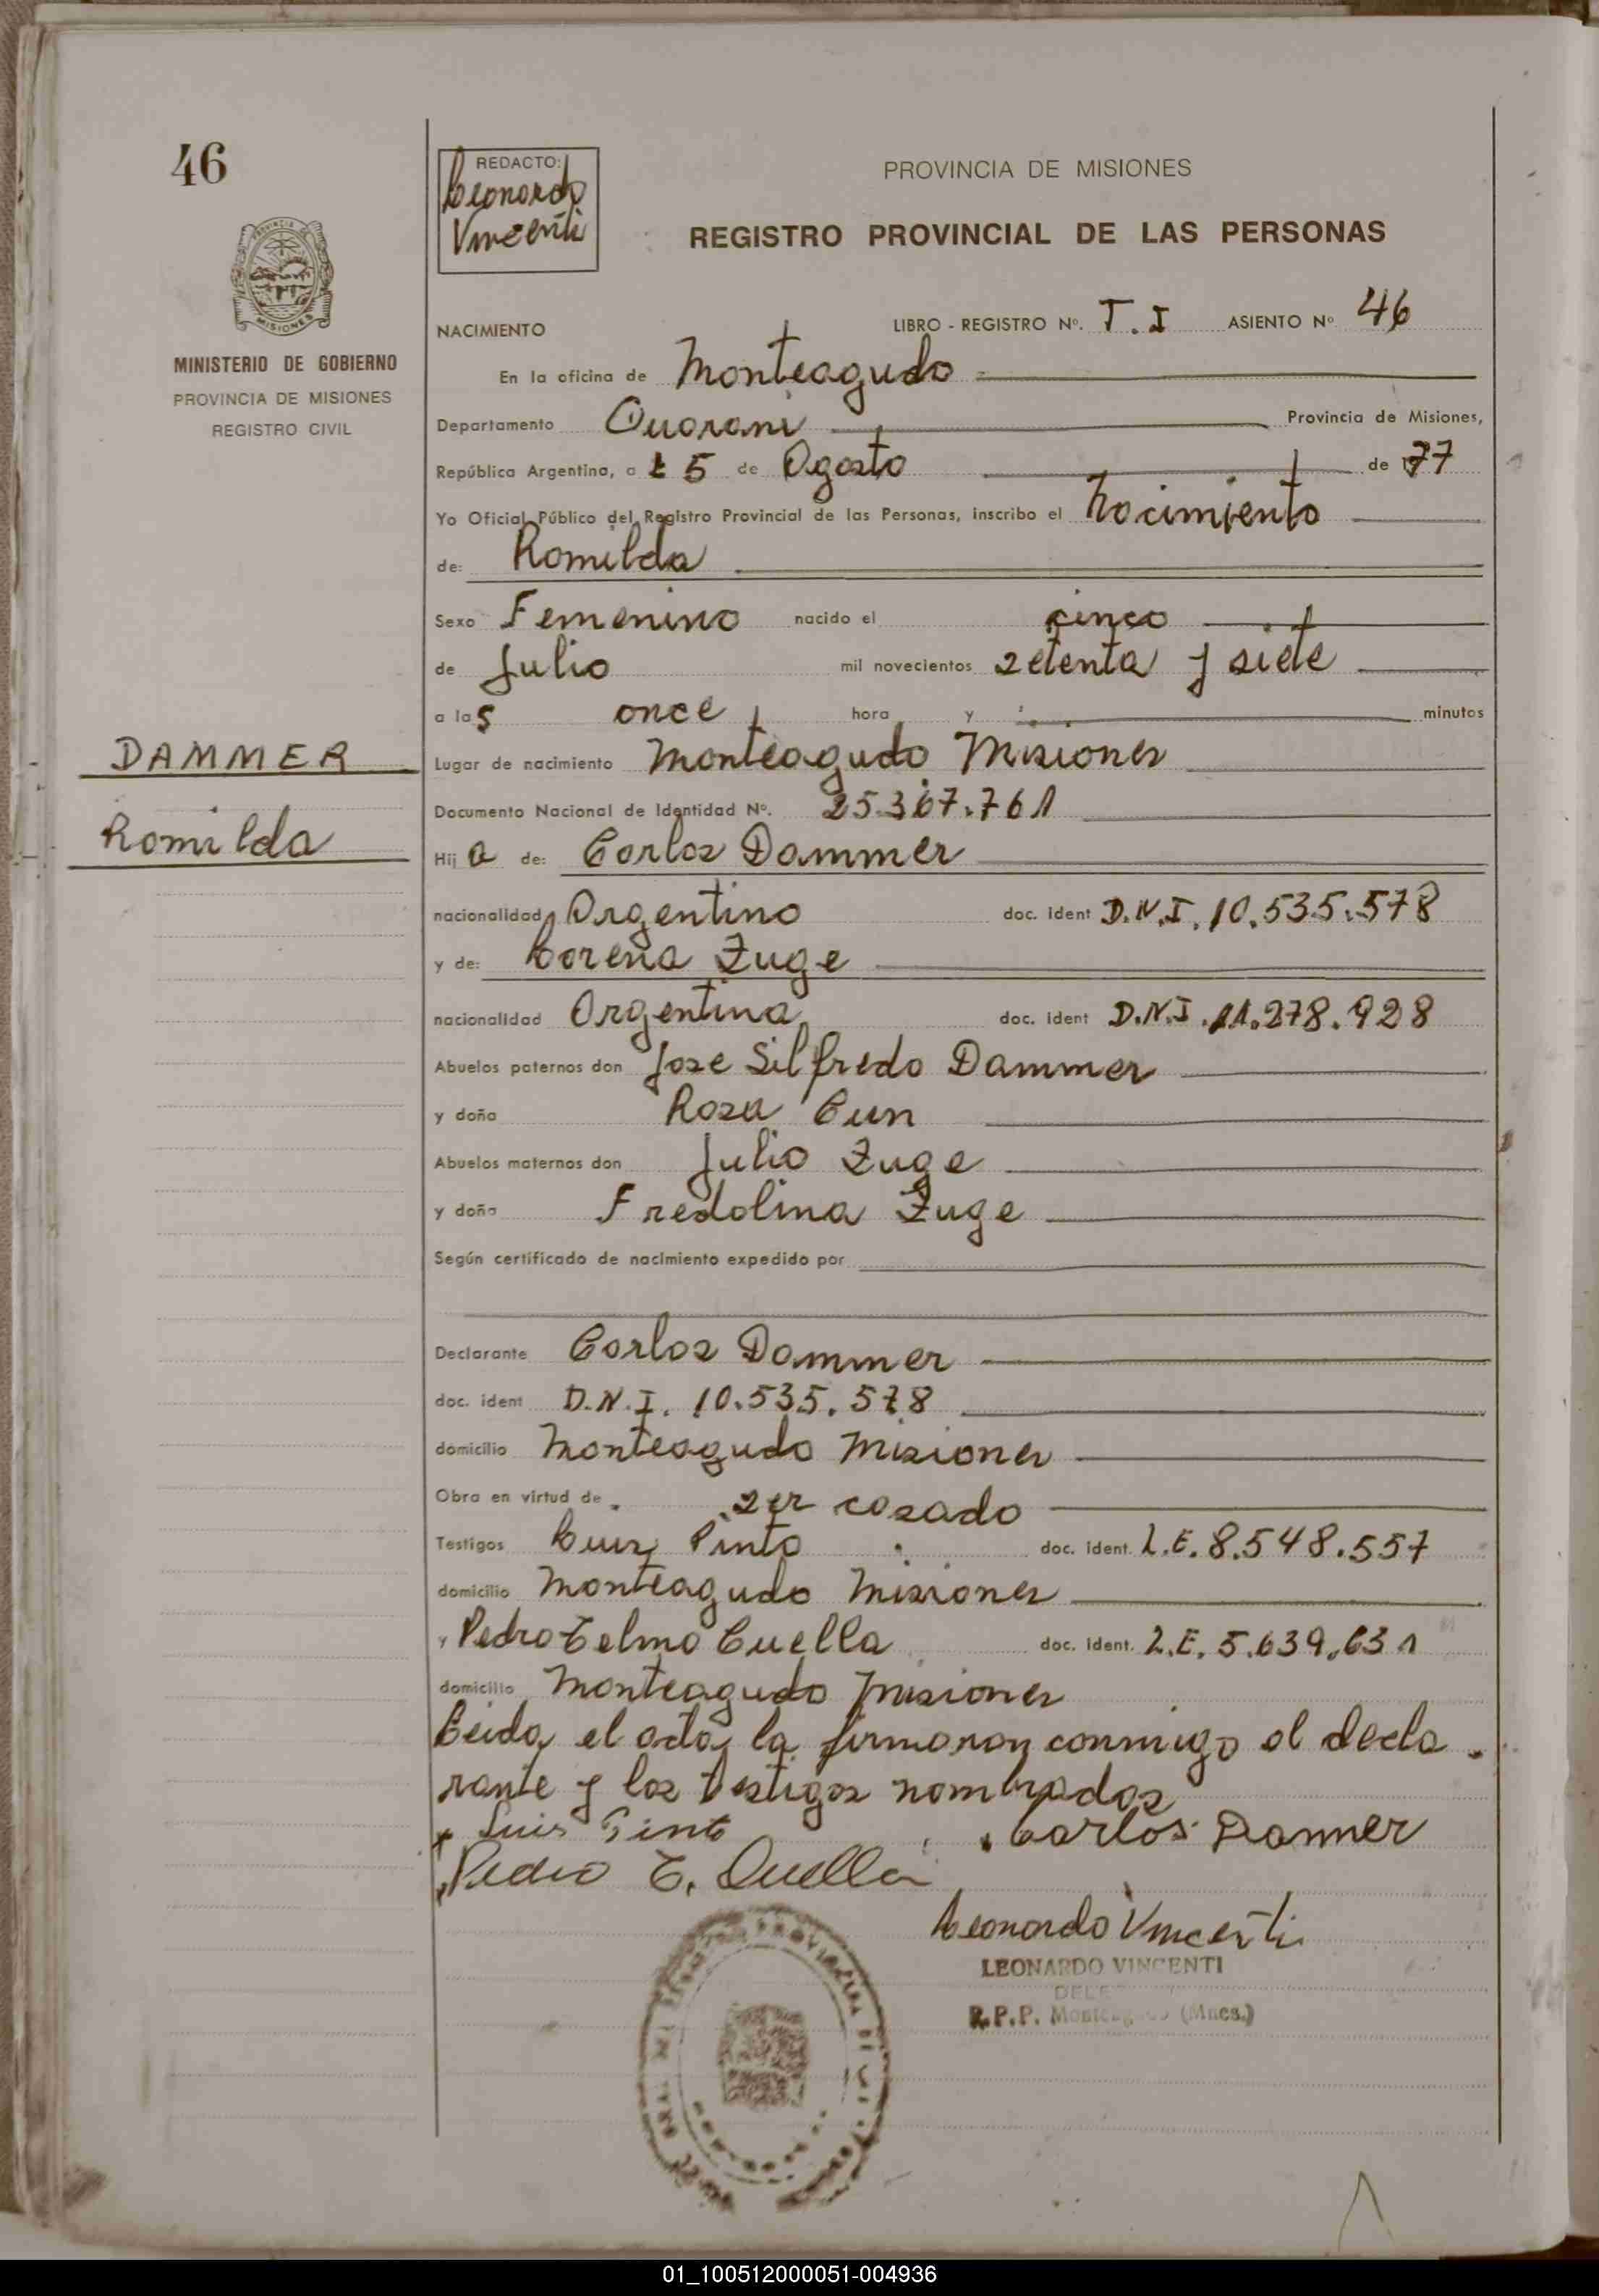 46
REDACTO:
Leonardo
Vincenti
PROVINCIA DE MISIONES
REGISTRO PROVINCIAL DE LAS PERSONAS
PROVINCIA DE
MISIONES
MINISTERIO DE GOBIERNO
PROVINCIA DE MISIONES
REGISTRO CIVIL
NACIMIENTO LIBRO - REGISTRO Nº. T. I ASIENTO Nº 46
En la oficina de Monteagudo
Departamento Guarani Provincia de Misiones,
República Argentina, a 5 de Agosto de 1977
Yo Oficial Público del Registro Provincial de las Personas, inscribo el Nacimiento
de: Romilda
Sexo Femenino nacido el cinco
de Julio mil novecientos setenta y siete
a las once hora y minutos
DAMMER
Romilda
Lugar de nacimiento Monteagudo Misiones
Documento Nacional de Identidad Nº. 25.367.761
Hija de: Carlos Dammer
nacionalidad Argentino doc. ident D.N.I. 10.535.578
y de: Lorena Zuge
nacionalidad Argentina doc. ident D.N.I. 11.278.928
Abuelos paternos don Jose Silfredo Dammer
y doña Rosa Cun
Abuelos maternos don Julio Zuge
y doña Fredolina Zuge
Según certificado de nacimiento expedido por
Declarante Carlos Dammer
doc. ident D.N.I. 10.535.578
domicilio Monteagudo Misiones
Obra en virtud de ser casado
Testigos Luis Pinto doc. ident. L.E. 8.548.557
domicilio Monteagudo Misiones
y Pedro Telmo Cuella doc. ident. L.E. 5.639.631
domicilio Monteagudo Misiones
Leida el acta la firmaron conmigo el decla
rante y los testigos nombrados
Luis Pinto Carlos Dammer
Pedro T. Cuella
Leonardo Vincenti
LEONARDO VINCENTI
R.P.P. Monteagudo (Mnes.)
01_100512000051-004936